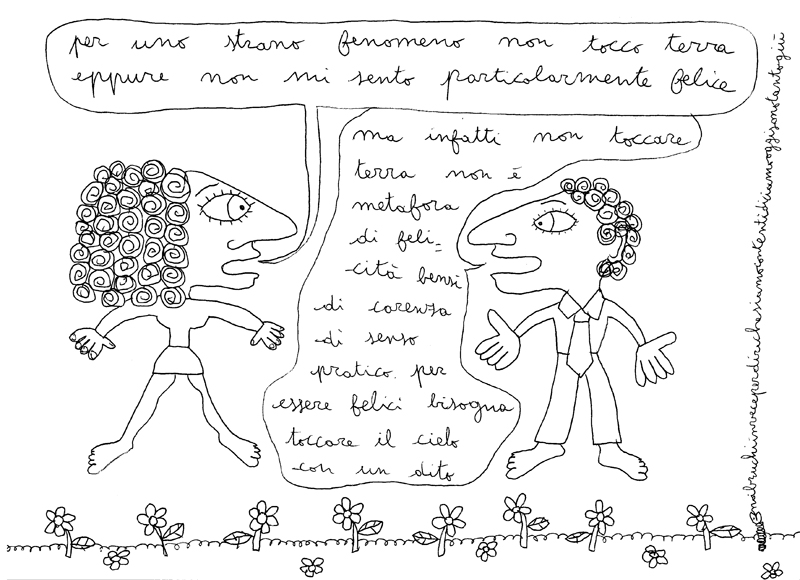 per uno strano fenomeno non tocco terra
eppure non mi sento particolarmente felice
ma infatti non toccare
terra non è
metafora
di feli=
cità bensì
di carenza
di senso
pratico. per
essere felici bisogna
toccare il cielo
con un dito